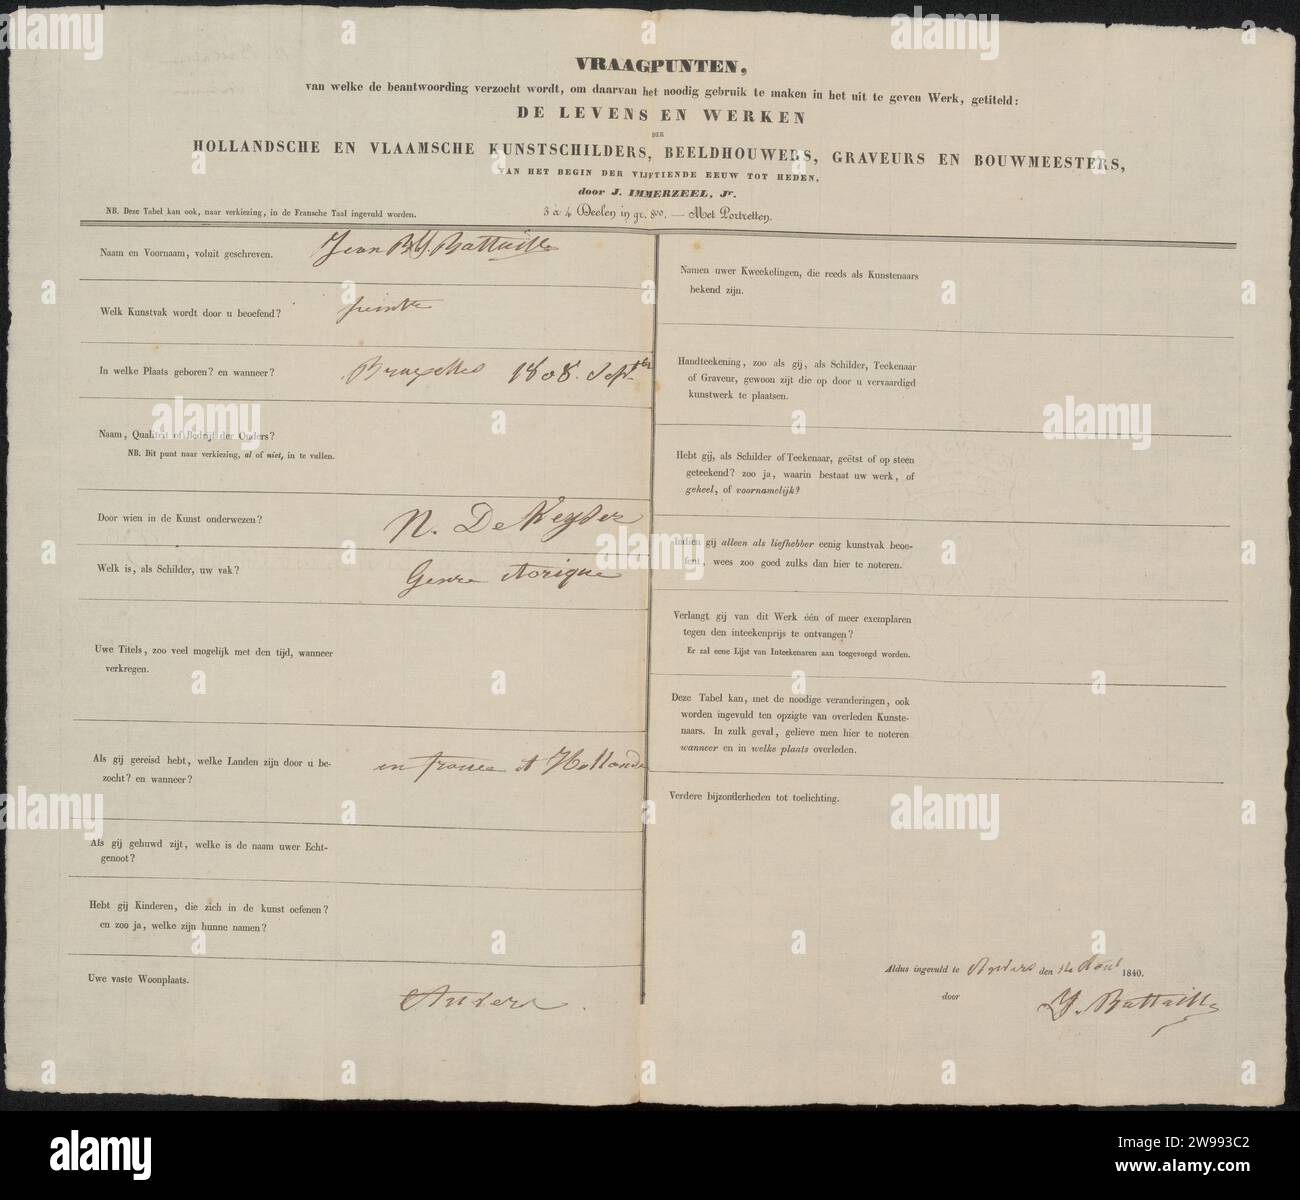 VRAAGPUNTEN,
van welke de beantwoording verzocht wordt, om daarvan het noodig gebruik te maken in het uit te geven Werk, getiteld:
DE LEVENS EN WERKEN
DER
HOLLANDSCHE EN VLAAMSCHE KUNSTSCHILDERS, BEELDHOUWERS, GRAVEURS EN BOUWMEESTERS,
VAN HET BEGIN DER VIJFTIENDE EEUW TOT HEDEN,
door J. IMMERZEEL, Jr.
NB. Deze Tabel kan ook, naar verkiezing, in de Fransche Taal ingevuld worden.
3 à 4 Deelen in gr. 8vo. — Met Portretten.
Naam en Voornaam, voluit geschreven.
Jean Bataille
Welk Kunstvak wordt door u beoefend?
peintre
In welke Plaats geboren? en wanneer?
Bruxelles 1808. Sept
Naam, Qualiteit of Bedrijf der Ouders?
NB. Dit punt naar verkiezing, al of niet, in te vullen.
Door wien in de Kunst onderwezen?
N. De Keyser
Welk is, als Schilder, uw vak?
Genre istorique
Uwe Titels, zoo veel mogelijk met den tijd, wanneer
verkregen.
Als gij gereisd hebt, welke Landen zijn door u be-
zocht? en wanneer?
en france et Hollande
Als gij gehuwd zijt, welke is de naam uwer Echt-
genoot?
Hebt gij Kinderen, die zich in de kunst oefenen?
en zoo ja, welke zijn hunne namen?
Uwe vaste Woonplaats.
Anvers
Namen uwer Kweekelingen, die reeds als Kunstenaars
bekend zijn.
Handteekening, zoo als gij, als Schilder, Teekenaar
of Graveur, gewoon zijt die op door u vervaardigd
kunstwerk te plaatsen.
Hebt gij, als Schilder of Teekenaar, geëtst of op steen
geteekend? zoo ja, waarin bestaat uw werk, of
geheel, of voornamelijk?
Indien gij alleen als liefhebber eenig kunstvak beoe-
fent, wees zoo goed zulks dan hier te noteren.
Verlangt gij van dit Werk één of meer exemplaren
tegen den inteekenprijs te ontvangen?
Er zal eene Lijst van Inteekenaren aan toegevoegd worden.
Deze Tabel kan, met de noodige veranderingen, ook
worden ingevuld ten opzigte van overleden Kunste-
naars. In zulk geval, gelieve men hier te noteren
wanneer en in welke plaats overleden.
Verdere bijzonderheden tot toelichting.
Aldus ingevuld te Anvers den 14 Aout 1840.
door
Y. Battaille
alamy
Image ID: 2W993C2
www.alamy.com